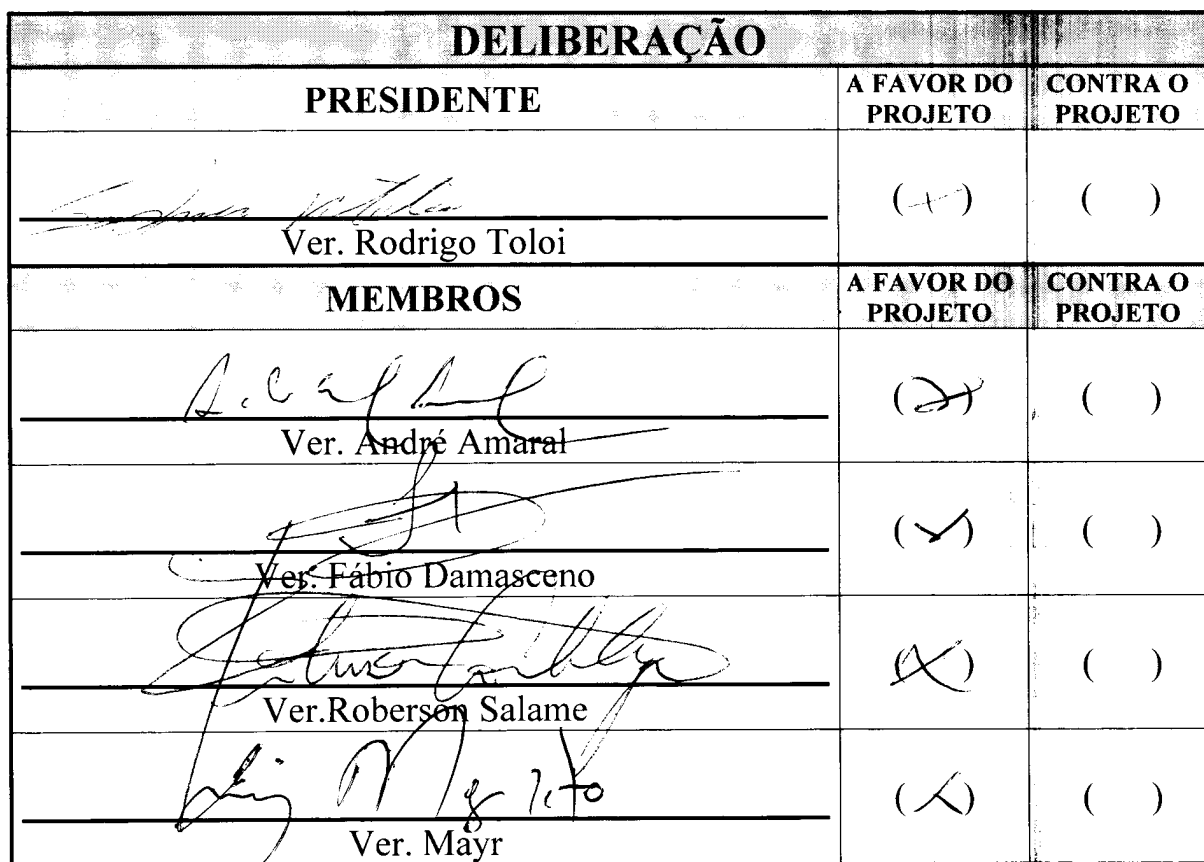 DELIBERAÇÃO
PRESIDENTE
A FAVOR DO PROJETO
CONTRA O PROJETO
( )
Ver. Rodrigo Toloi
MEMBROS
A FAVOR DO PROJETO
CONTRA O PROJETO
( )
Ver. André Amaral
( )
Ver. Fábio Damasceno
( )
Ver.Roberson Salame
( )
Ver. Mayr